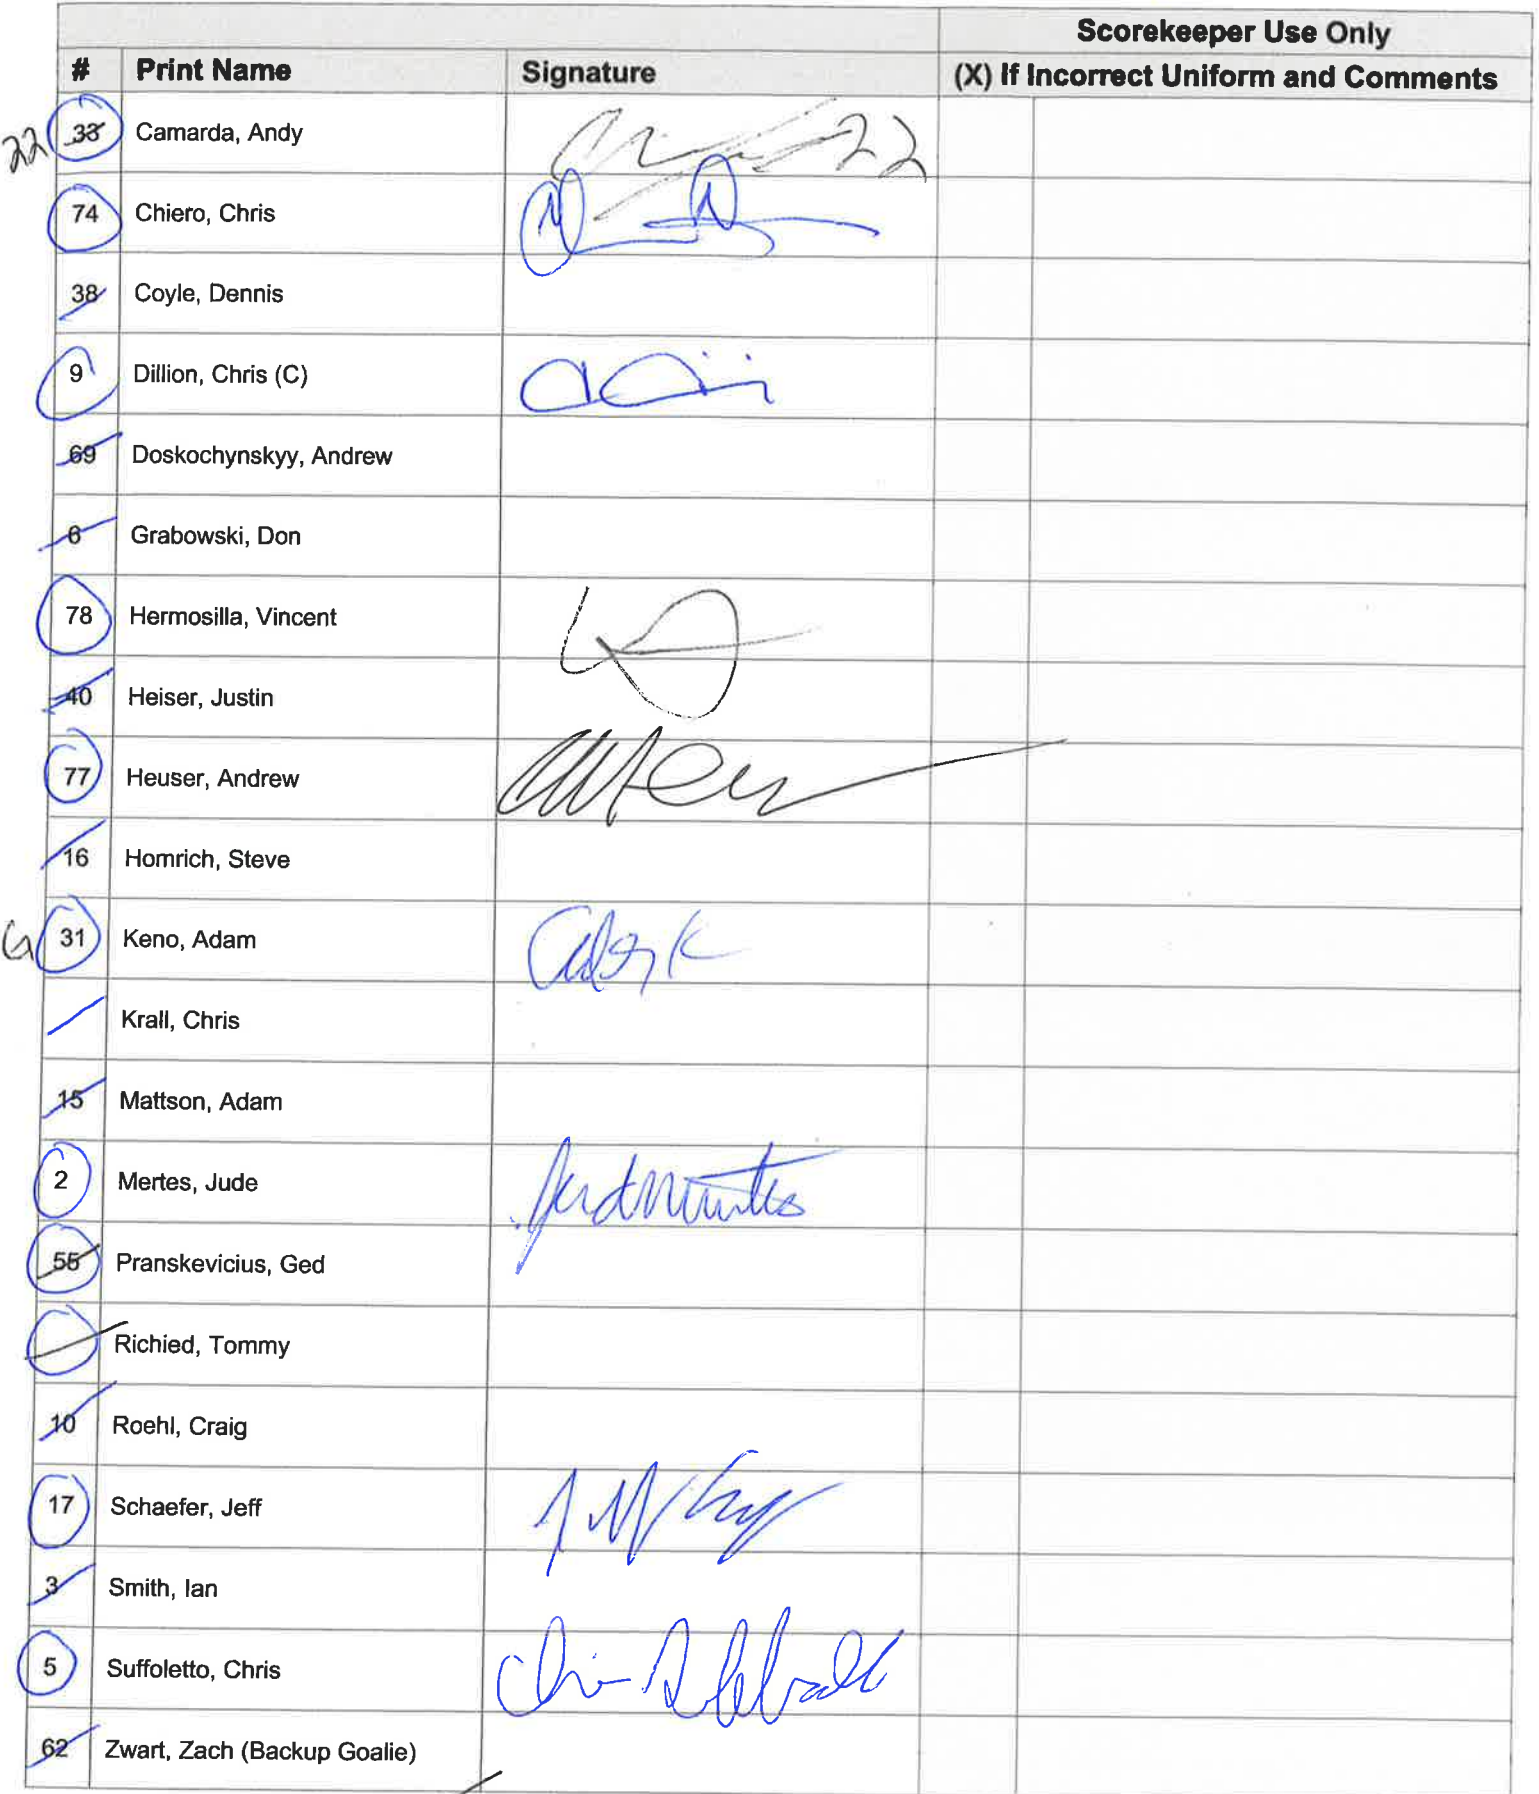 Scorekeeper Use Only
# Print Name Signature (X) If Incorrect Uniform and Comments
22 33 Camarda, Andy 22
74 Chiero, Chris
38 Coyle, Dennis
9 Dillion, Chris (C)
69 Doskochynskyy, Andrew
6 Grabowski, Don
78 Hermosilla, Vincent
40 Heiser, Justin
77 Heuser, Andrew
16 Homrich, Steve
G 31 Keno, Adam
Krall, Chris
15 Mattson, Adam
2 Mertes, Jude
55 Pranskevicius, Ged
Richied, Tommy
10 Roehl, Craig
17 Schaefer, Jeff
3 Smith, Ian
5 Suffoletto, Chris
62 Zwart, Zach (Backup Goalie)